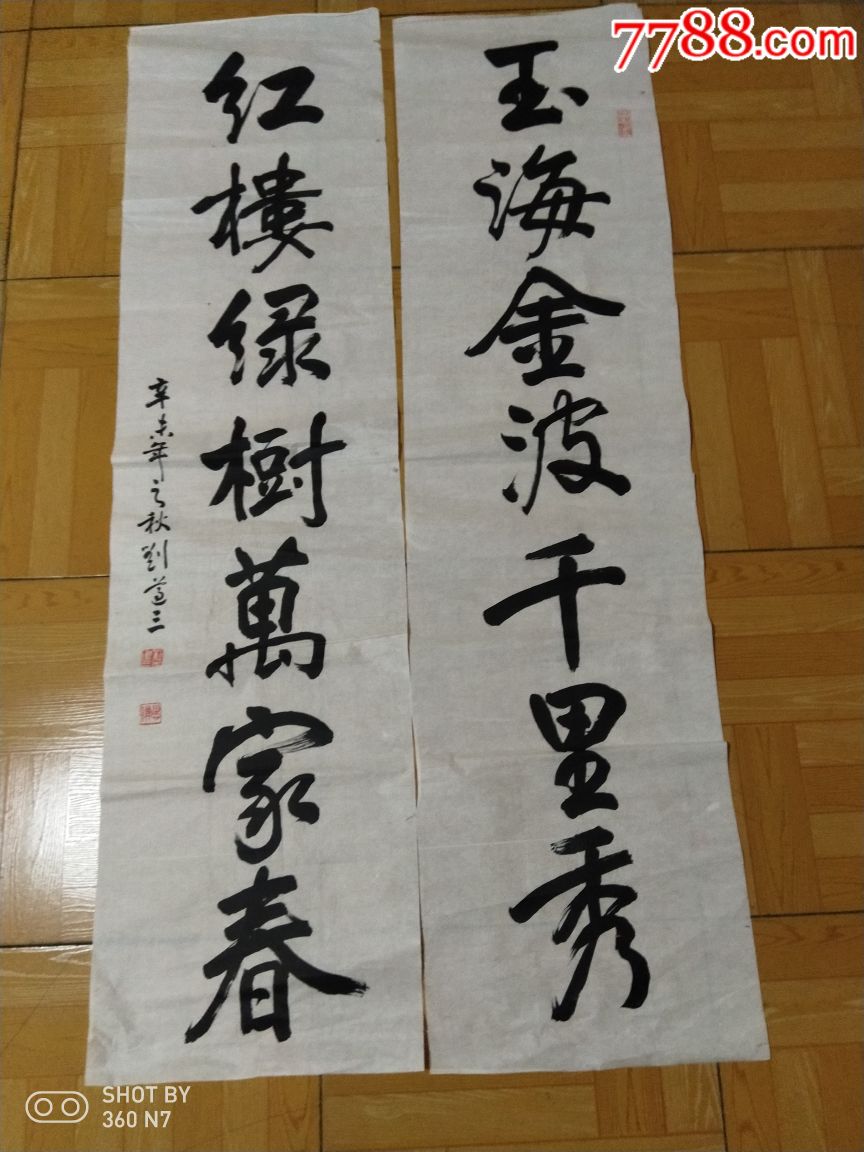 7788.com
玉海金波千里秀
红樓绿樹萬家春
辛未年之秋刘遵三
SHOT BY
360 N7